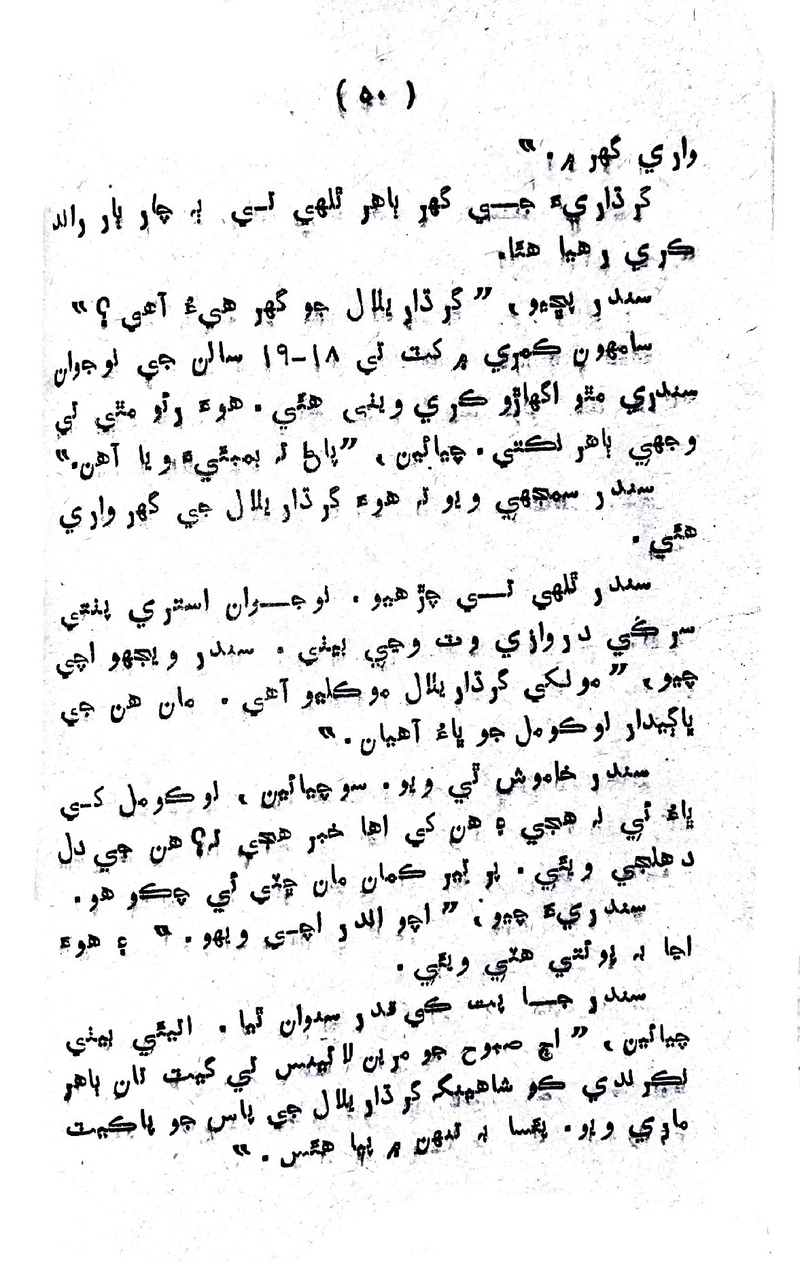 ( ۵۰ )
واري گهر ۾ . ”
گرڌاريءَ جــي گهر ٻاهر ٿلهي تــي ٻه چار ٻار راند
ڪري رهيا هئا.
سندر پڇيو، ” گرڌاريلال جو گهر هيءُ آهي ؟ “
سامهون ڪمري ۾ کٽ تي ۱۸-۱۹ سالن جي نوجوان
سندري مٿو اگهاڙو ڪري ويٺي هئي . هوءَ رئو مٿي تي
وجهي ٻاهر نڪتي . چيائين ، ”پاڻ ته بمبئيءَ ويا آهن.“
سندر سمجهي ويو ته هوءَ گرڌاريلال جي گهر واري
هئي .
سندر ٿلهي تــي چڙهيو . نوجــوان استري پٺتي
سرڪي دروازي وٽ وڃي بيٺي . سندر ويجهو اچي
چيو، ” مونکي گرڌاريلال موڪليو آهي . مان هن جي
ڀاڱيدار لوڪومل جو ڀاءُ آهيان . “
سندر خاموش ٿي ويو . سوچيائين ، لوڪومل کــي
ڀاءُ ئي نه هجي ۽ هن کي اها خبر هجي ته؟ هن جي دل
دهلجي ويئي . پر تير ڪمان مان ڇٽي ئي چڪو هو .
سندريءَ چيو، ” اچو اندر اچــي ويهو . “ ۽ هوءَ
اڃا به پوئتي هٽي ويئي .
سندر جــا پٽ ڪي قدر سنوان ٿيا . اتيئي بيٺي
چيائين ، ” اڄ صبوح جو مرين لائينس تي گيٽ تان ٻاهر
نڪرندي ڪو شاهينگ گرڌاريلال جي پاس جو پاڪيٽ
ماري ويو . پئسا به تنهن ۾ پيا هئس . “